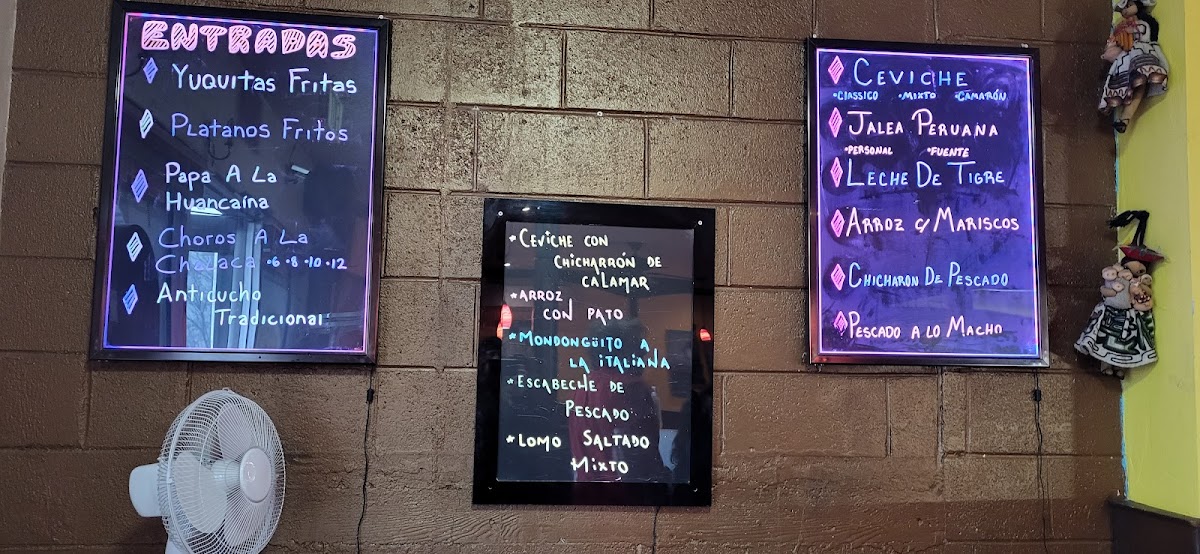 ENTRADAS
YUQUITAS FRITAS
PLATANOS FRITOS
PAPA A LA
HUANCAÍNA
CHOROS A LA
CHALACA •6 •8 •10 •12
ANTICUCHO
TRADICIONAL
*CEVICHE CON
CHICHARRÓN DE
CALAMAR
*ARROZ
CON PATO
*MONDONGÜITO A
LA ITALIANA
*ESCABECHE DE
PESCADO
*LOMO SALTADO
MIXTO
CEVICHE
•CLASSICO •MIXTO •CAMARÓN
JALEA PERUANA
•PERSONAL •FUENTE
LECHE DE TIGRE
ARROZ C/ MARISCOS
CHICHARON DE PESCADO
PESCADO A LO MACHO